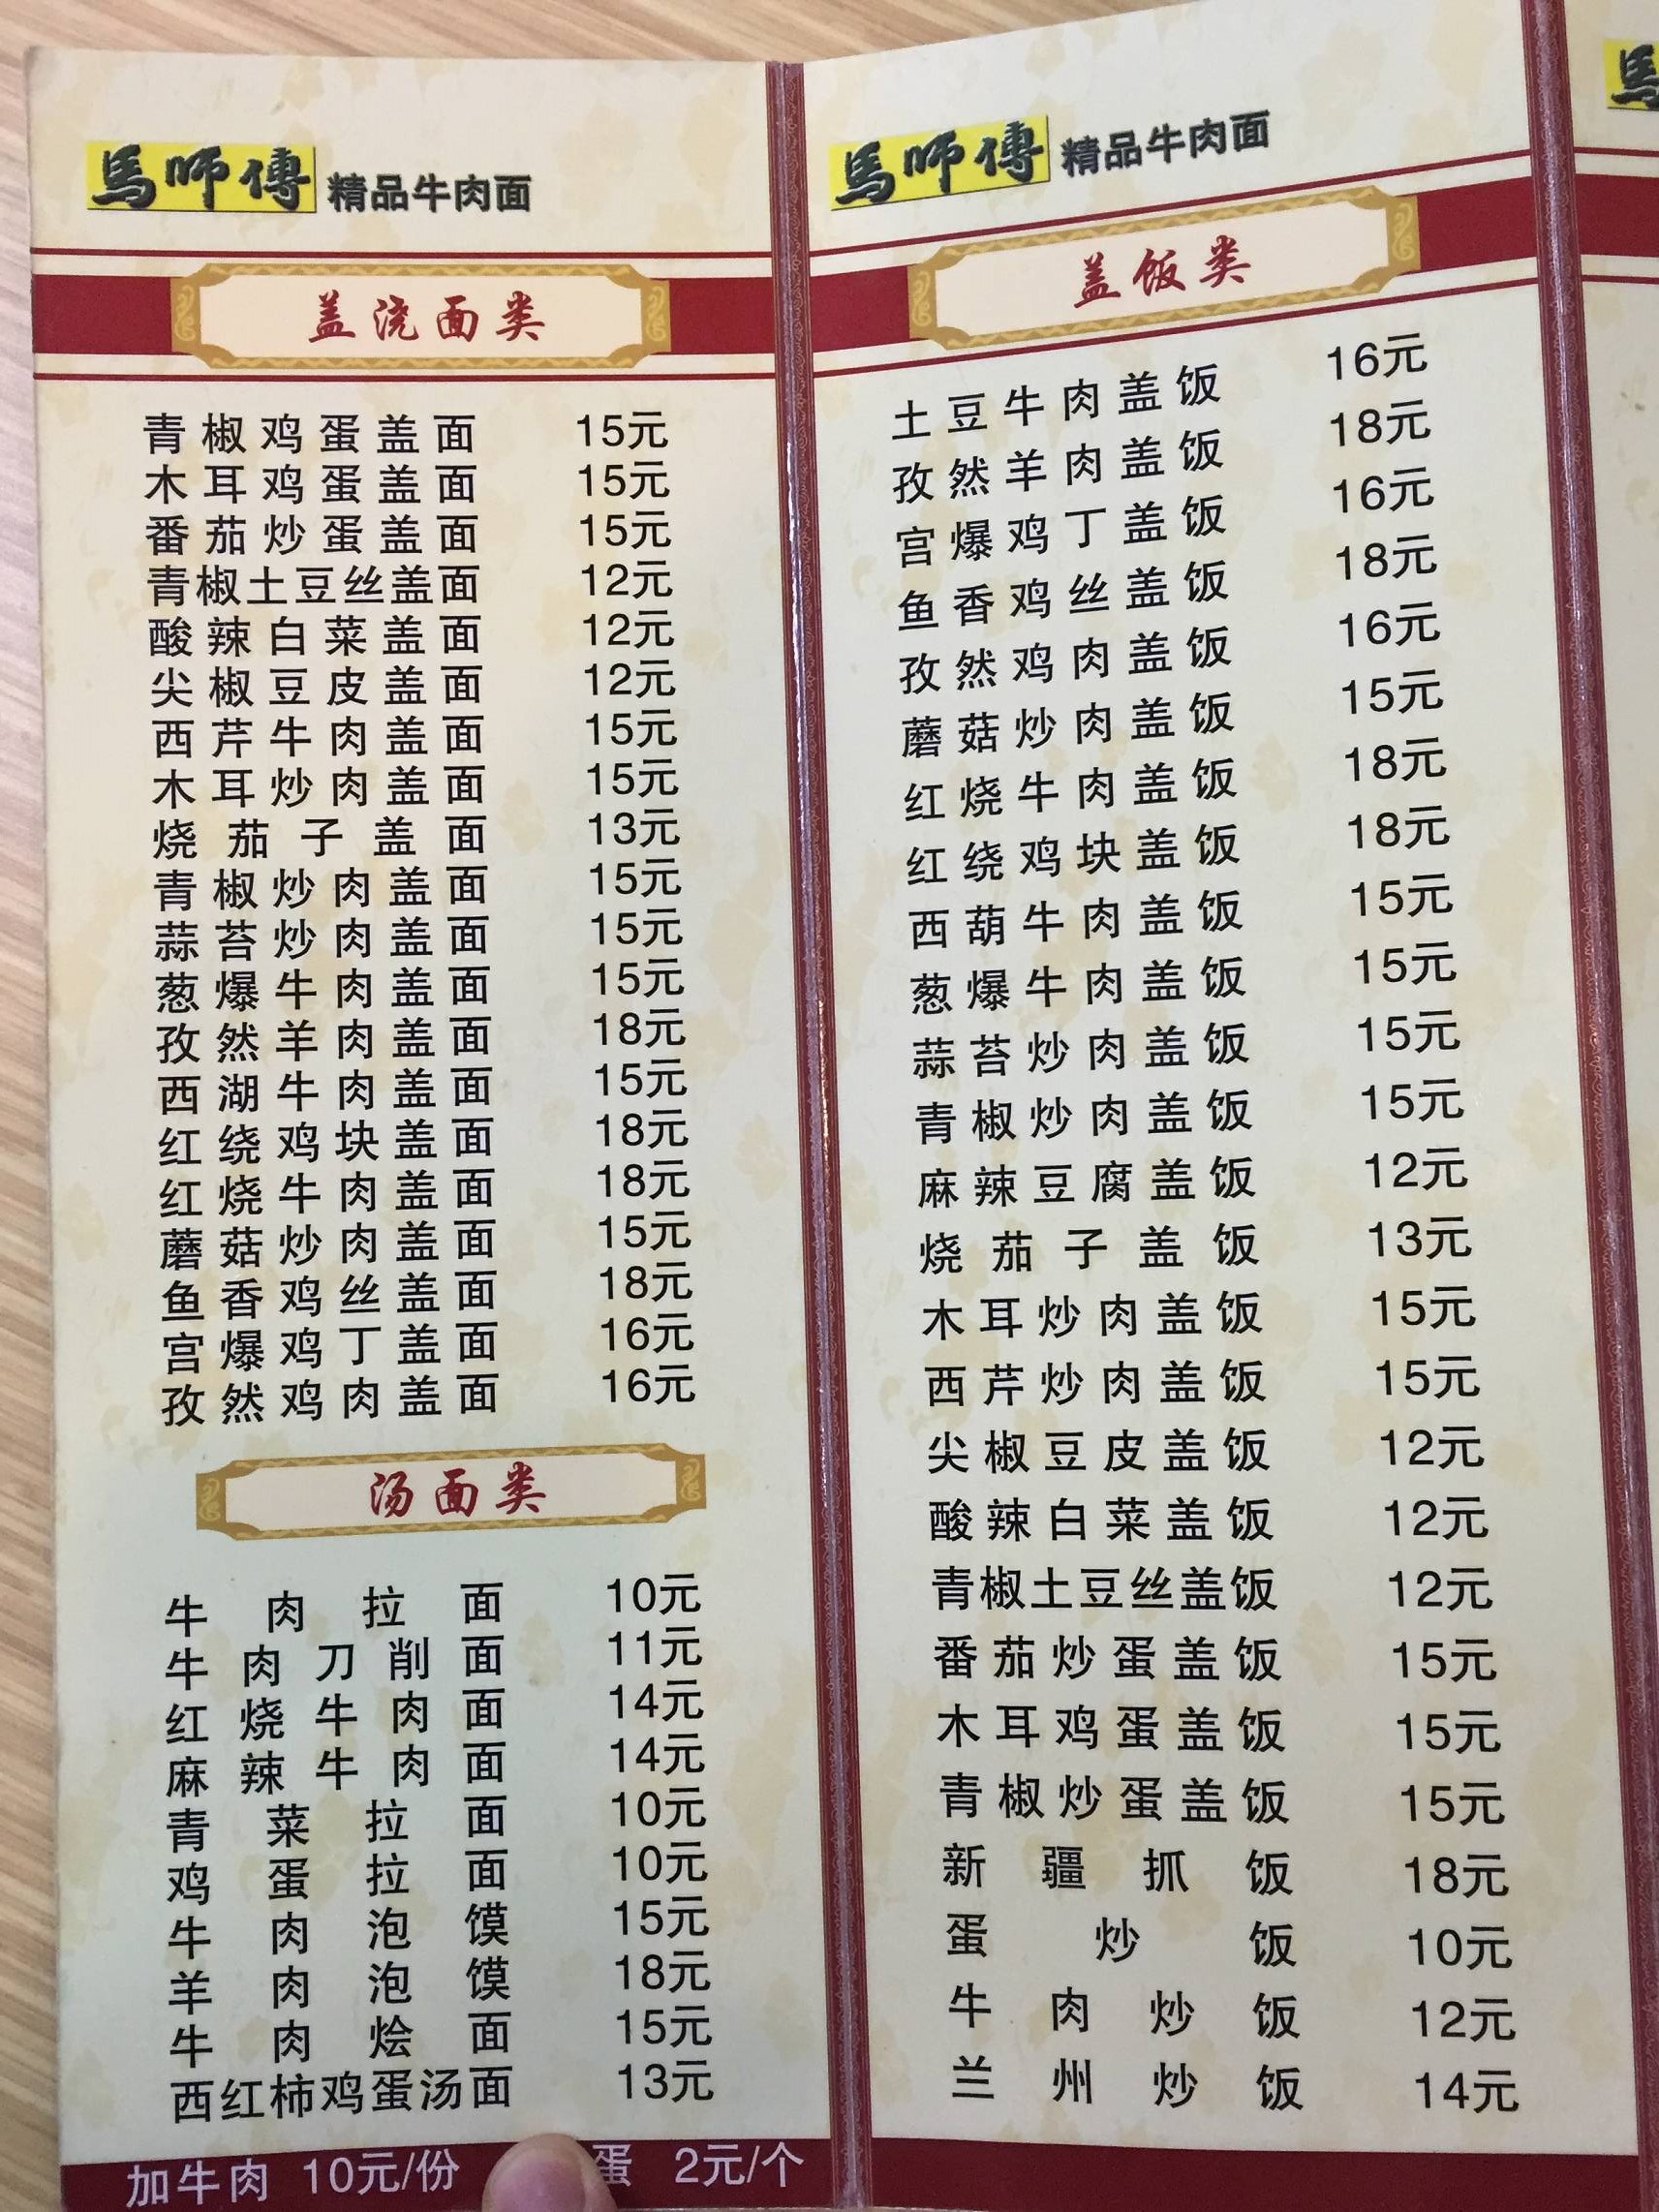 馬師傅 精品牛肉面
盖浇面类
青椒鸡蛋盖面 15元
木耳鸡蛋盖面 15元
番茄炒蛋盖面 15元
青椒土豆丝盖面 12元
酸辣白菜盖面 12元
尖椒豆皮盖面 12元
西芹牛肉盖面 15元
木耳炒肉盖面 15元
烧茄子盖面 13元
青椒炒肉盖面 15元
蒜苔炒肉盖面 15元
葱爆牛肉盖面 15元
孜然羊肉盖面 18元
西湖牛肉盖面 15元
红绕鸡块盖面 18元
红烧牛肉盖面 18元
蘑菇炒肉盖面 15元
鱼香鸡丝盖面 18元
宫爆鸡丁盖面 16元
孜然鸡肉盖面 16元
汤面类
牛肉拉面 10元
牛肉刀削面 11元
红烧牛肉面 14元
麻辣牛肉面 14元
青菜拉面 10元
鸡蛋拉面 10元
牛肉泡馍 15元
羊肉泡馍 18元
牛肉烩面 15元
西红柿鸡蛋汤面 13元
加牛肉 10元/份 蛋 2元/个
馬師傅 精品牛肉面
盖饭类
土豆牛肉盖饭 16元
孜然羊肉盖饭 18元
宫爆鸡丁盖饭 16元
鱼香鸡丝盖饭 18元
孜然鸡肉盖饭 16元
蘑菇炒肉盖饭 15元
红烧牛肉盖饭 18元
红绕鸡块盖饭 18元
西葫牛肉盖饭 15元
葱爆牛肉盖饭 15元
蒜苔炒肉盖饭 15元
青椒炒肉盖饭 15元
麻辣豆腐盖饭 12元
烧茄子盖饭 13元
木耳炒肉盖饭 15元
西芹炒肉盖饭 15元
尖椒豆皮盖饭 12元
酸辣白菜盖饭 12元
青椒土豆丝盖饭 12元
番茄炒蛋盖饭 15元
木耳鸡蛋盖饭 15元
青椒炒蛋盖饭 15元
新疆抓饭 18元
蛋炒饭 10元
牛肉炒饭 12元
兰州炒饭 14元
馬